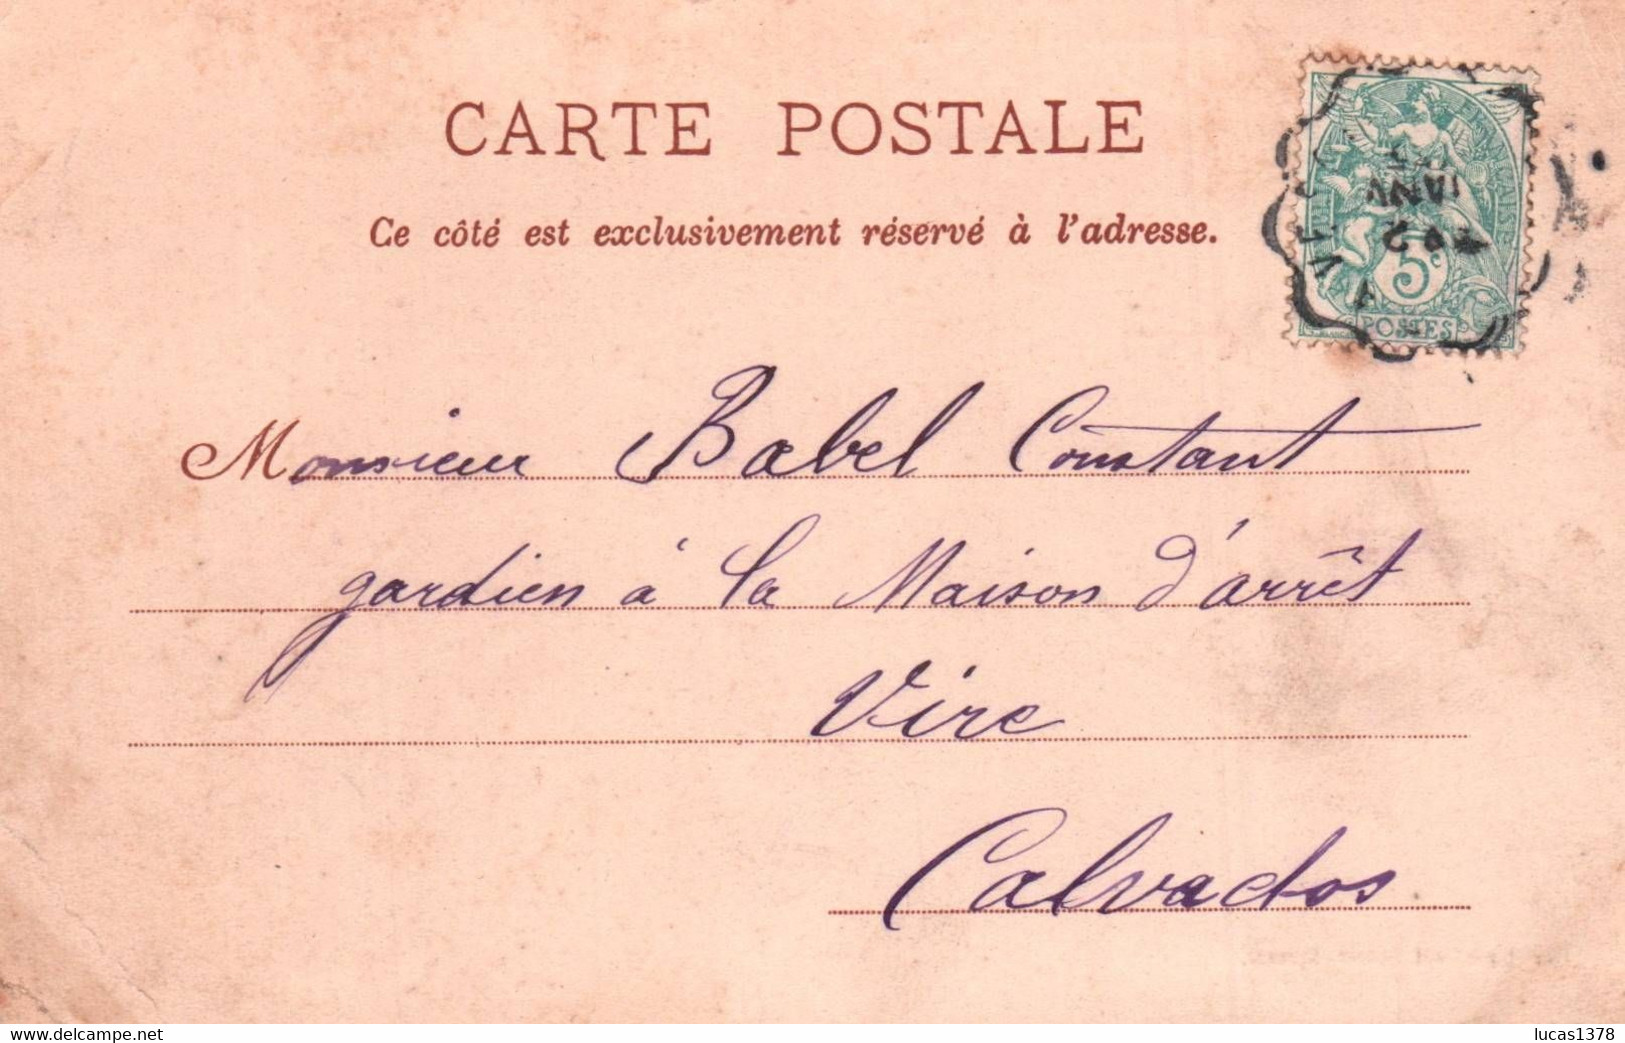 CARTE POSTALE
Ce côté est exclusivement réservé à l'adresse.
5c
POSTES
2
JANV
Monsieur Babel Constant
gardien à la Maison d'arrêt
Vire
Calvados
delcampe.net
lucas1378